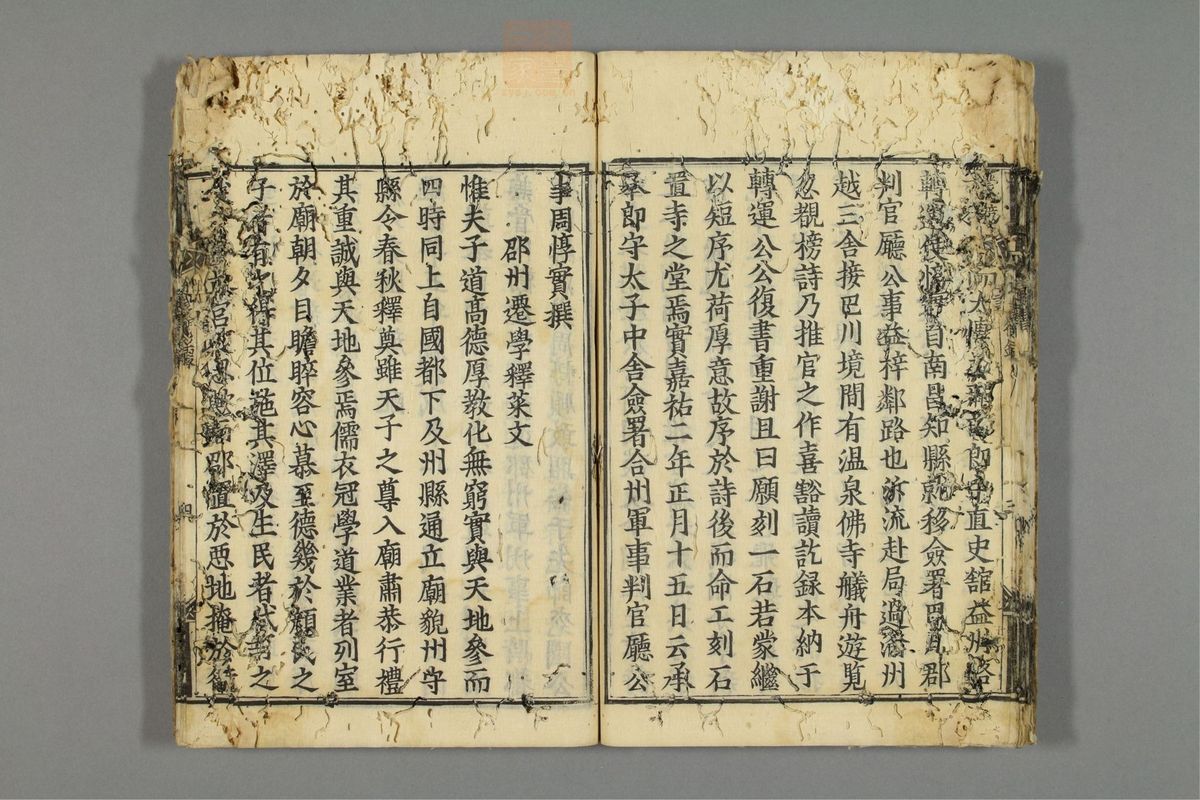 太博 直史舘益州路
轉運使 自南昌知縣就移僉署巴川郡
判官廳公事益梓鄰路也泝流赴局過 州
越三舍接巴川境間有溫泉佛寺艤舟遊覧
忽覩榜詩乃推官之作喜豁讀訖録本納于
轉運公公復書重謝且曰願刻一石若蒙繼
以短序尤荷厚意故序於詩後而命工刻石
置寺之堂焉實嘉祐二年正月十五日云承
奉郎守太子中舍僉署合州軍事判官廳公
事周惇實撰
邵州遷學釋菜文
惟夫子道高德厚教化無窮實與天地參而
四時同上自國都下及州縣通立廟貌州守
縣令春秋釋奠雖天子之尊入廟肅恭行禮
其重誠與天地參焉儒衣冠學道業者列室
於廟朝夕目瞻睟容心慕至德幾於顔氏之
子者有之得其位施其澤及生民者代有之
郡置於惡地掩於